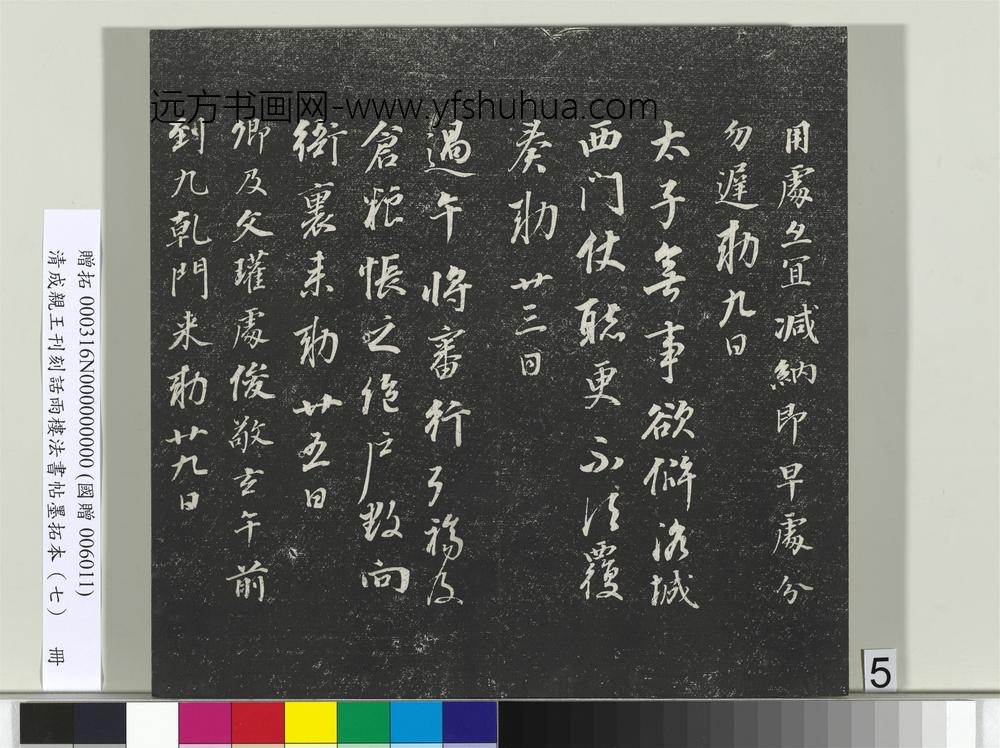 用處反宜減納即早處分
勿遲勅九日
太子無事欲僻洛城
西门仗聽更不須覆
奏勅廿三日
過午將審行弓福及
倉粮悵之絶户數向
衙裏来勅廿五日
卿及文瓘處俊敬玄午前
到九乾門来勅廿九日
远方书画网-www.yfshuhua.com
贈拓 000316N000000000(國贈 006011)
清成親王刊刻話雨樓法書帖墨拓本(七) 冊
5